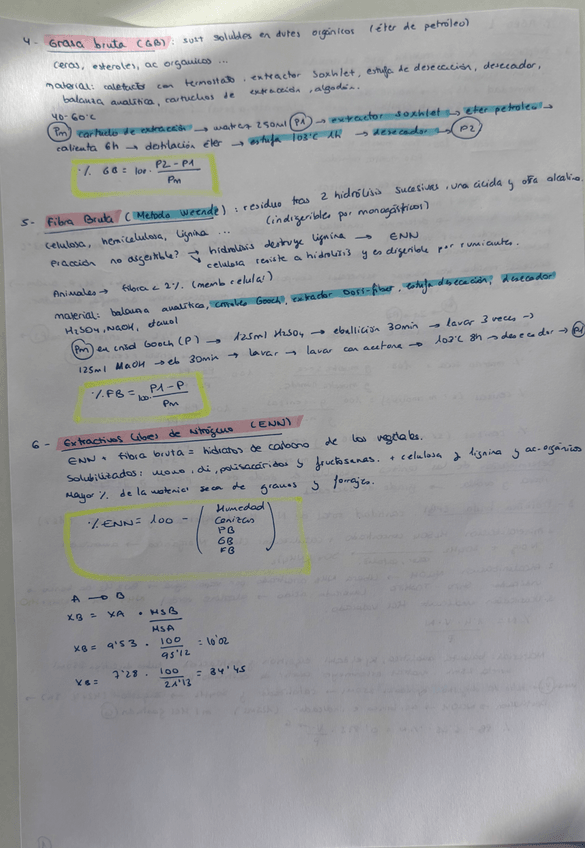 4- Grasa bruta (GB): sust solubles en dvtes orgánicos (éter de petróleo)
ceras, esteroles, ac organicos ...
material: calefactor con termostato, extractor Soxhlet, estufa de desecación, desecador,
balanza analítica, cartuchos de extracción, algodón.
40-60ºC
Pm cartucho de extracción → matraz 250ml P1 → extractor soxhlet → éter petróleo →
calienta 6h → destilación éter → estufa 103ºC 1h → desecador → P2
% GB = 100. P2-P1 / Pm
5- Fibra Bruta (Metodo Weende): residuo tras 2 hidrólisis sucesivas, una ácida y otra alcalina,
celulosa, hemicelulosa, lignina ... (indigeribles por monogástricos)
Fracción no digestible? → hidrólisis destruye lignina → ENN
→ celulosa resiste a hidrólisis y es digerible por rumiantes.
Animales → fibra < 2% (memb celular)
material: balanza analítica, crisoles Gooch, extractor Dosi-fiber, estufa desecación, desecador
H2SO4, NaOH, etanol
Pm en crisol Gooch (P) → 125ml H2SO4 → ebullición 30min → lavar 3 veces →
125ml NaOH → eb 30min → lavar → lavar con acetona → 103ºC 8h → desecador → P1
% FB = 100. P1-P / Pm
6- Extractivos Libres de Nitrógeno (ENN)
ENN + fibra bruta = hidratos de carbono de los vegetales.
Solubilizados: mono, di, polisacáridos y fructosanas. + celulosa y lignina y ac-orgánicos
Mayor % de la materia seca de granos y forrajes.
% ENN = 100 - ( Humedad
Cenizas
PB
GB
FB )
A → B
XB = XA · MSB / MSA
XB = 9'53 · 100 / 95'12 = 10'02
XB = 7'28 · 100 / 21'13 = 34'45